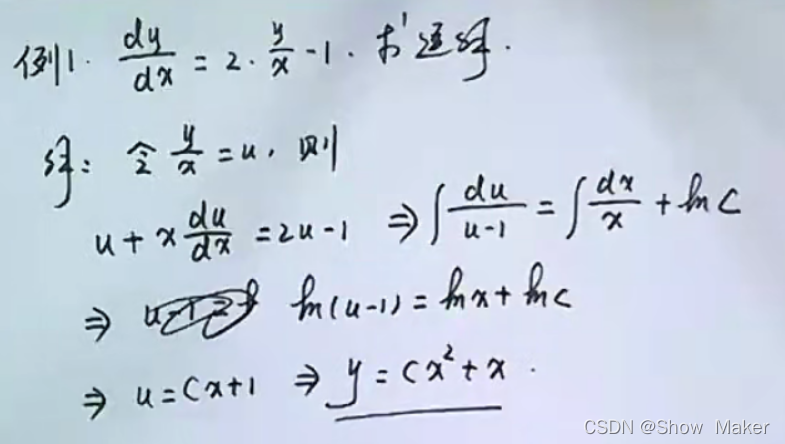 例1. dy/dx = 2·y/x - 1. 求通解.
解: 令 y/x = u, 则
u + x du/dx = 2u-1 ⇒ ∫ du/(u-1) = ∫ dx/x + ln C
⇒ ln(u-1) = ln x + ln C
⇒ u = Cx+1 ⇒ y = Cx² + x.
CSDN @Show Maker